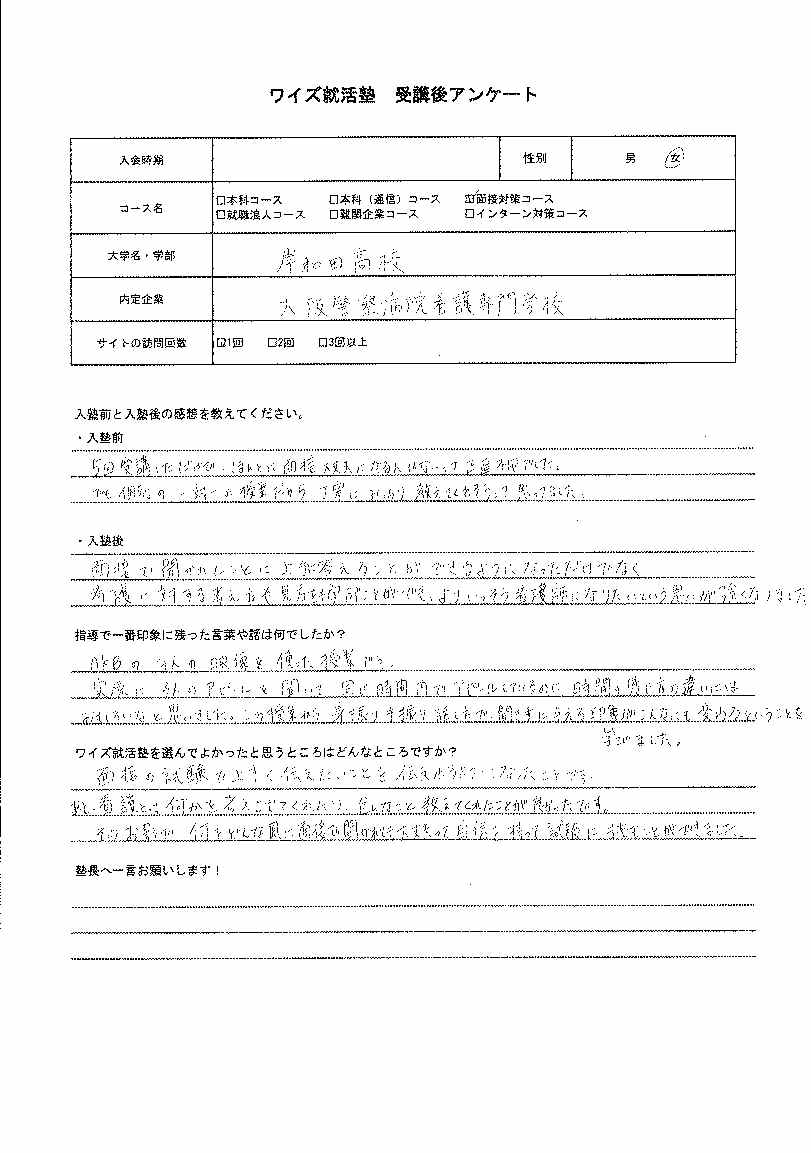 ワイズ就活塾 受講後アンケート
入会時期 性別 男 女
コース名 □本科コース □本科（通信）コース ☑面接対策コース
□就職浪人コース □難関企業コース □インターン対策コース
大学名・学部 岸和田高校
内定企業 大阪警察病院看護専門学校
サイトの訪問回数 ☑1回 □2回 □3回以上
入塾前と入塾後の感想を教えてください。
・入塾前
5回受講しただけで、ほんとに面接大丈夫になるんかなって正直不安でした。
でも個別の一対一の授業だから丁寧にしっかり教えてくれそうって思ってました。
・入塾後
面接で聞かれたことに上手く答えることができるようになっただけでなく
看護に対する考え方や見方を学ぶことができ、よりいっそう看護師になりたいという思いが強くなりました
指導で一番印象に残った言葉や話は何でしたか？
の映像を使った授業です。
実際に アピールを聞いて、同じ時間内でアピールしているのに、時間の感じ方の違いには
おもしろいなと思いました。この授業から身振り手振り、話し方で、聞き手に与える印象がこんなにも変わるということを
学びました。
ワイズ就活塾を選んでよかったと思うところはどんなところですか？
面接の試験で上手く伝えたいことを伝えれるようになったことです。
あと、看護とは何かを考えさせてくれたり、色んなこと教えてくれたことが良かったです。
そのお影で、何をどんな風に面接で聞かれても大丈夫って自信を持って試験に挑むことができました。
塾長へ一言お願いします！